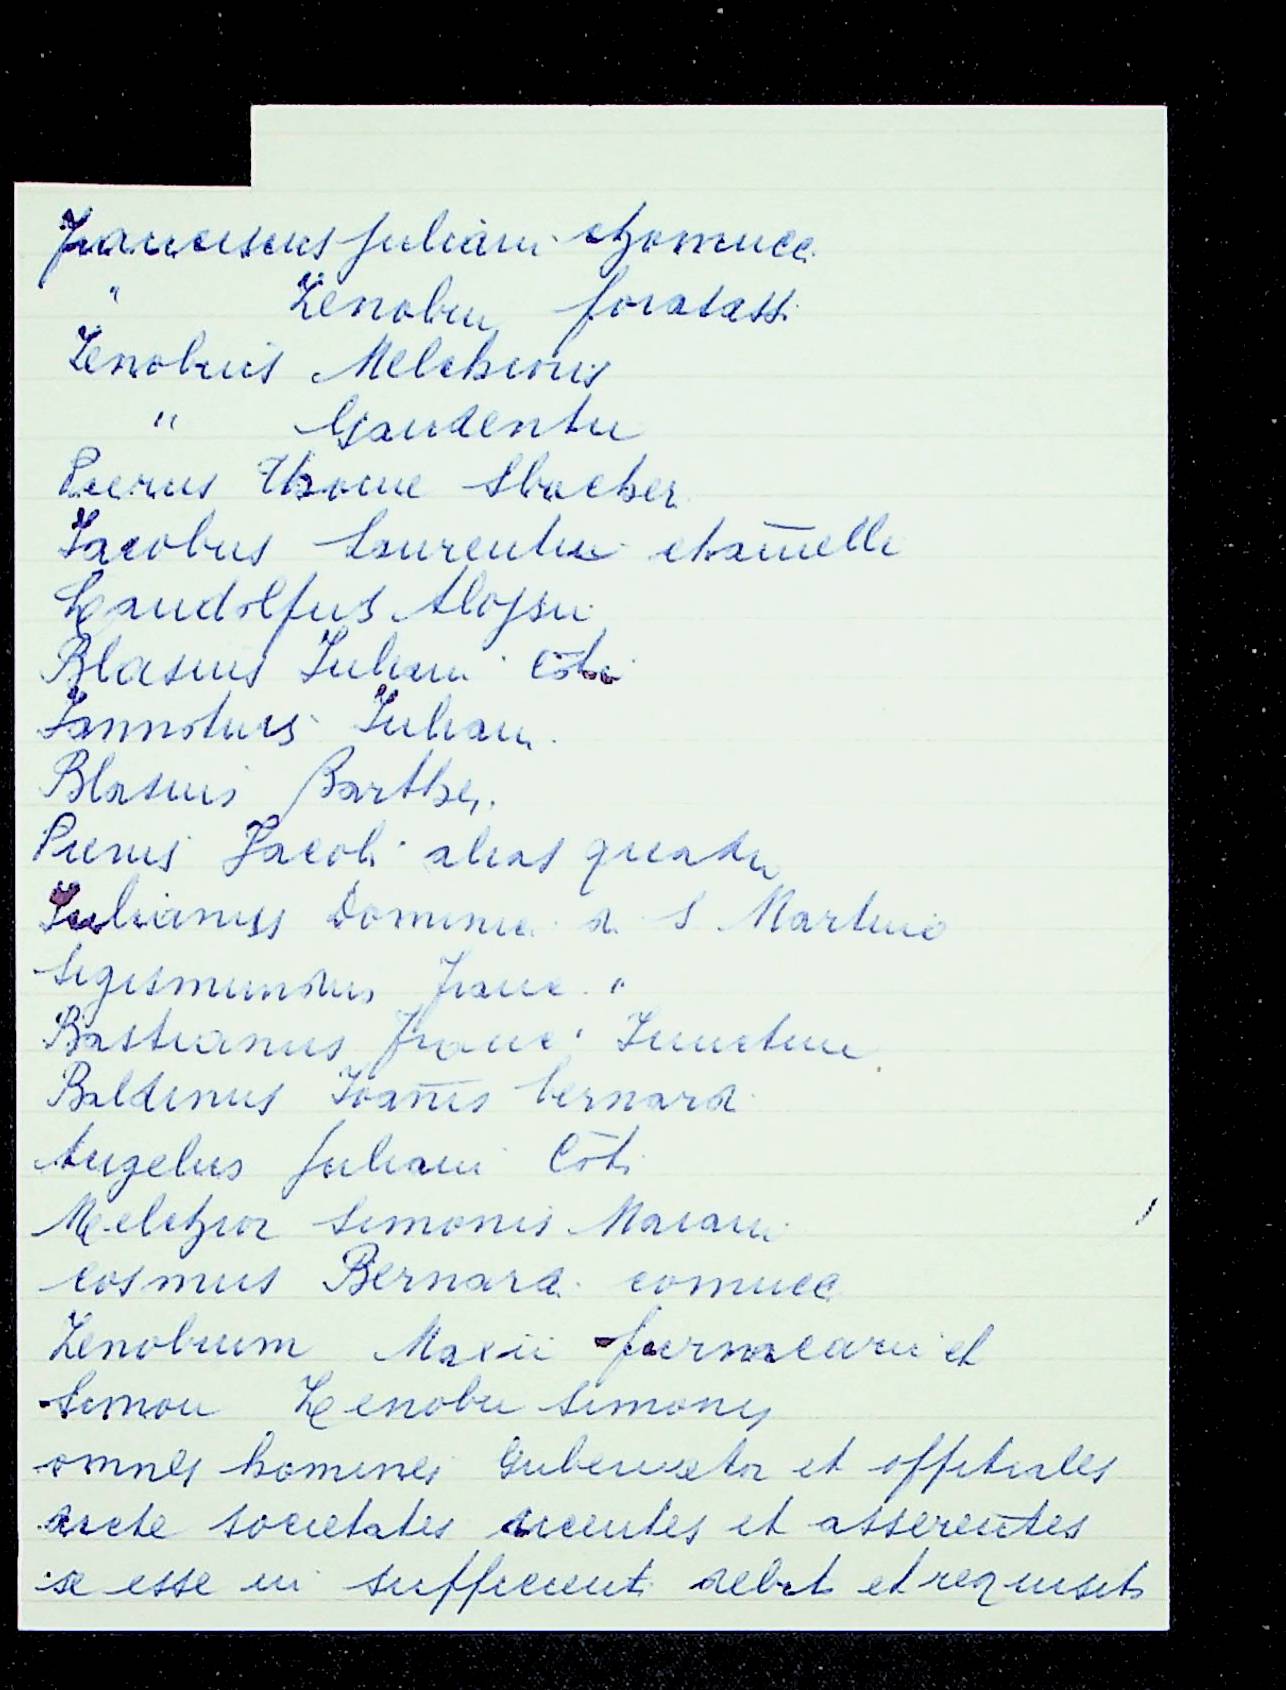 Franciscus Juliani chomucc.
" Zenobii foratassi
Zenobius Melchioris
" Gaudentii
Pierus Thome Sbacher
Jacobus Laurentii chaīelli
Landolfus Aloysii
Blasius Juliani Cōti
Jannotus Juliani
Blasius Barthei.
Pierus Jacobi alias
Julianus Dominici d. S Martino
Sigismundus Franc. "
Bastianus Franc. Junctini
Baldinus Joānis bernard.
Angelus Juliani Cōti
Melchior Simonis Mariani
Cosmus Bernard. comucc
Zenobium Macii furnaciarii et
Simon Zenobii Simonis
omnes homines Gubernator et offitiales
dicte societatis dicentes et asserentes
se esse in sufficienti debit et requisit